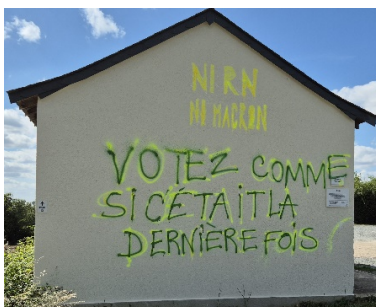 NI RN
NI MACRON
VOTEZ COMME
SI C'ÉTAIT LA
DERNIÈRE FOIS